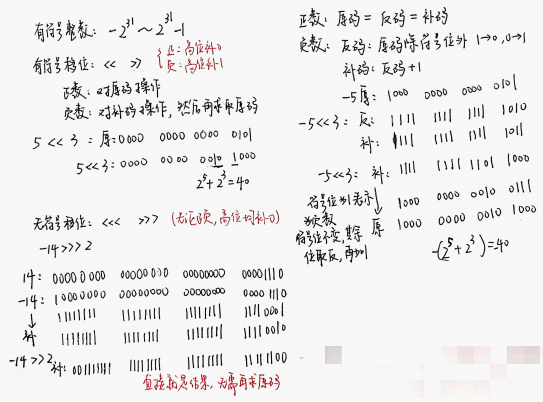 有符号整数: -2^31 ~ 2^31-1
有符号移位: << >> {正:高位补0
负:高位补1
正数: 对原码操作
负数: 对补码操作, 然后再求取原码
5 << 3 : 原: 0000 0000 0000 0101
5 << 3 : 0000 0000 0010 1000
2^5 + 2^3 = 40
无符号移位: <<< >>> (无论正负, 高位均补0)
-14>>>2
14: 00000000 00000000 00000000 00001110
-14: 10000000 00000000 00000000 00001110
↓ 11111111 11111111 11111111 11110001
补 11111111 11111111 11111111 11110010
-14>>2 补: 00111111 11111111 11111111 11111100
直接就是结果, 无需再求原码
正数: 原码 = 反码 = 补码
负数: 反码: 原码除符号位外 1→0, 0→1
补码: 反码+1
-5 原: 1000 0000 0000 0101
-5<<3: 反: 1111 1111 1111 1010
补: 1111 1111 1111 1011
-5<<3: 补: 1111 1111 1101 1000
符号位为1表示 1000 0000 0010 0111
为负数 原 1000 0000 0010 1000
符号位不变, 其余
位取反, 再加1 -(2^5+2^3)=40